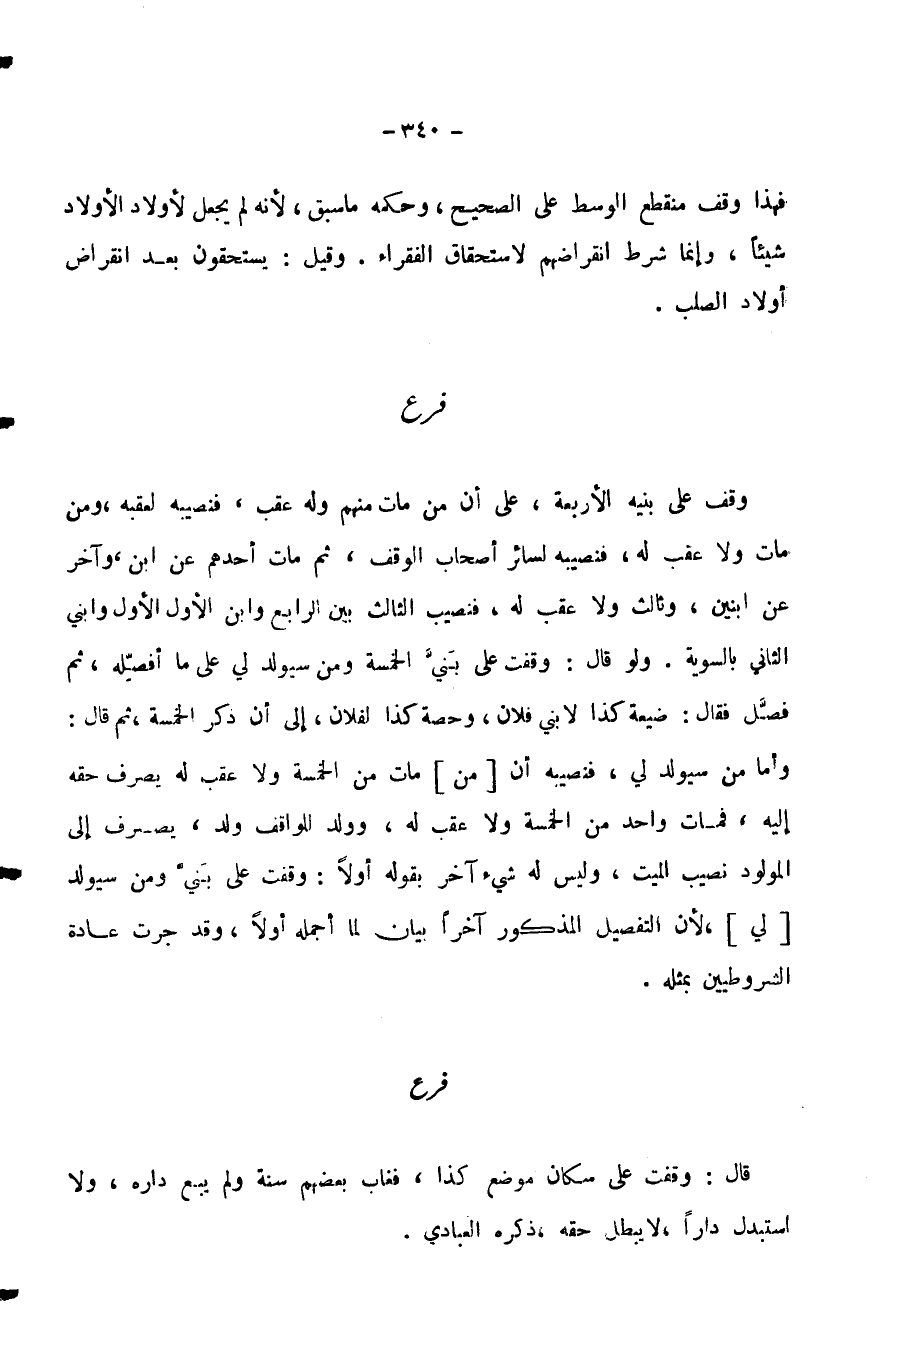 - ٣٤٠ -
فهذا وقف منقطع الوسط على الصحيح ، وحكمه ماسبق ، لأنه لم يجعل لأولاد الأولاد
شيئاً ، وإنما شرط انقراضهم لاستحقاق الفقراء . وقيل : يستحقون بعد انقراض
أولاد الصلب .
فرع
وقف على بنيه الأربعة ، على أن من مات منهم وله عقب ، فنصيبه لعقبه ، ومن
مات ولا عقب له ، فنصيبه لسائر أصحاب الوقف ، ثم مات أحدهم عن ابن ، وآخر
عن ابنين ، وثالث ولا عقب له ، فنصيب الثالث بين الرابع وابن الأول الأول وابني
الثاني بالسوية . ولو قال : وقفت على بَنيَّ الخمسة ومن سيولد لي على ما أفصِّله ، ثم
فصَّل فقال : ضيعة كذا لابني فلان ، وحصة كذا لفلان ، إلى أن ذكر الخمسة ، ثم قال :
وأما من سيولد لي ، فنصيبه أن [ من ] مات من الخمسة ولا عقب له يصرف حقه
إليه ، فمات واحد من الخمسة ولا عقب له ، وولد للواقف ولد ، يصرف إلى
المولود نصيب الميت ، وليس له شيء آخر بقوله أولاً : وقفت على بَنيَّ ومن سيولد
[ لي ] ، لأن التفصيل المذكور آخراً بيان لما أجمله أولاً ، وقد جرت عادة
الشروطيين بمثله .
فرع
قال : وقفت على سكان موضع كذا ، فغاب بعضهم سنة ولم يبع داره ، ولا
استبدل داراً ، لايبطل حقه ، ذكره العبادي .